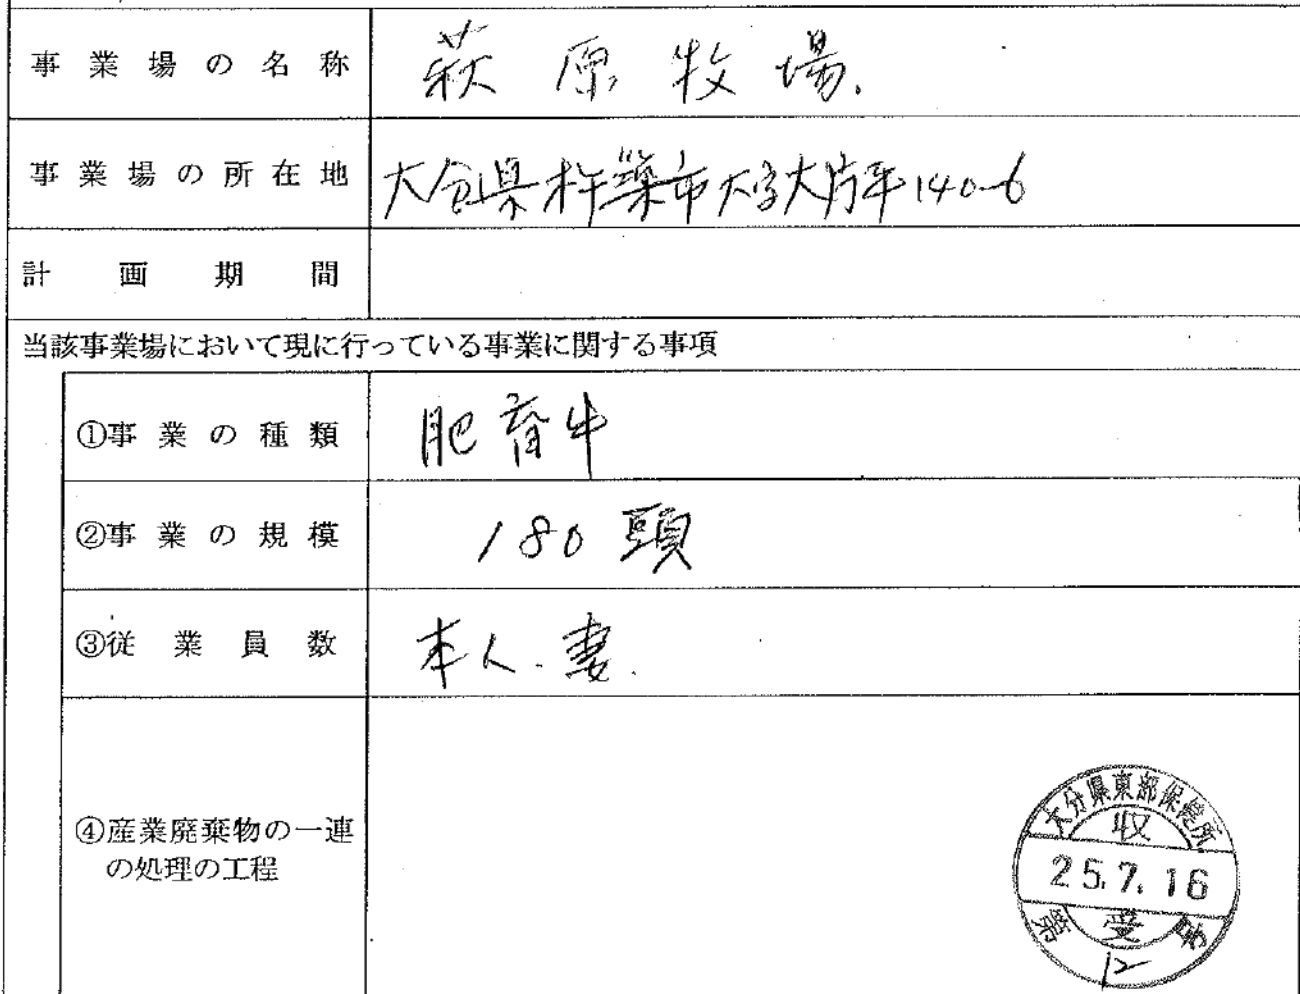 事業場の名称 萩原牧場.
事業場の所在地 大分県杵築市大字大片平140-6
計画期間
当該事業場において現に行っている事業に関する事項
①事業の種類 肥育牛
②事業の規模 180頭
③従業員数 本人.妻.
④産業廃棄物の一連
の処理の工程
大分県東部保健所
収
25.7.16
受
第 12 号